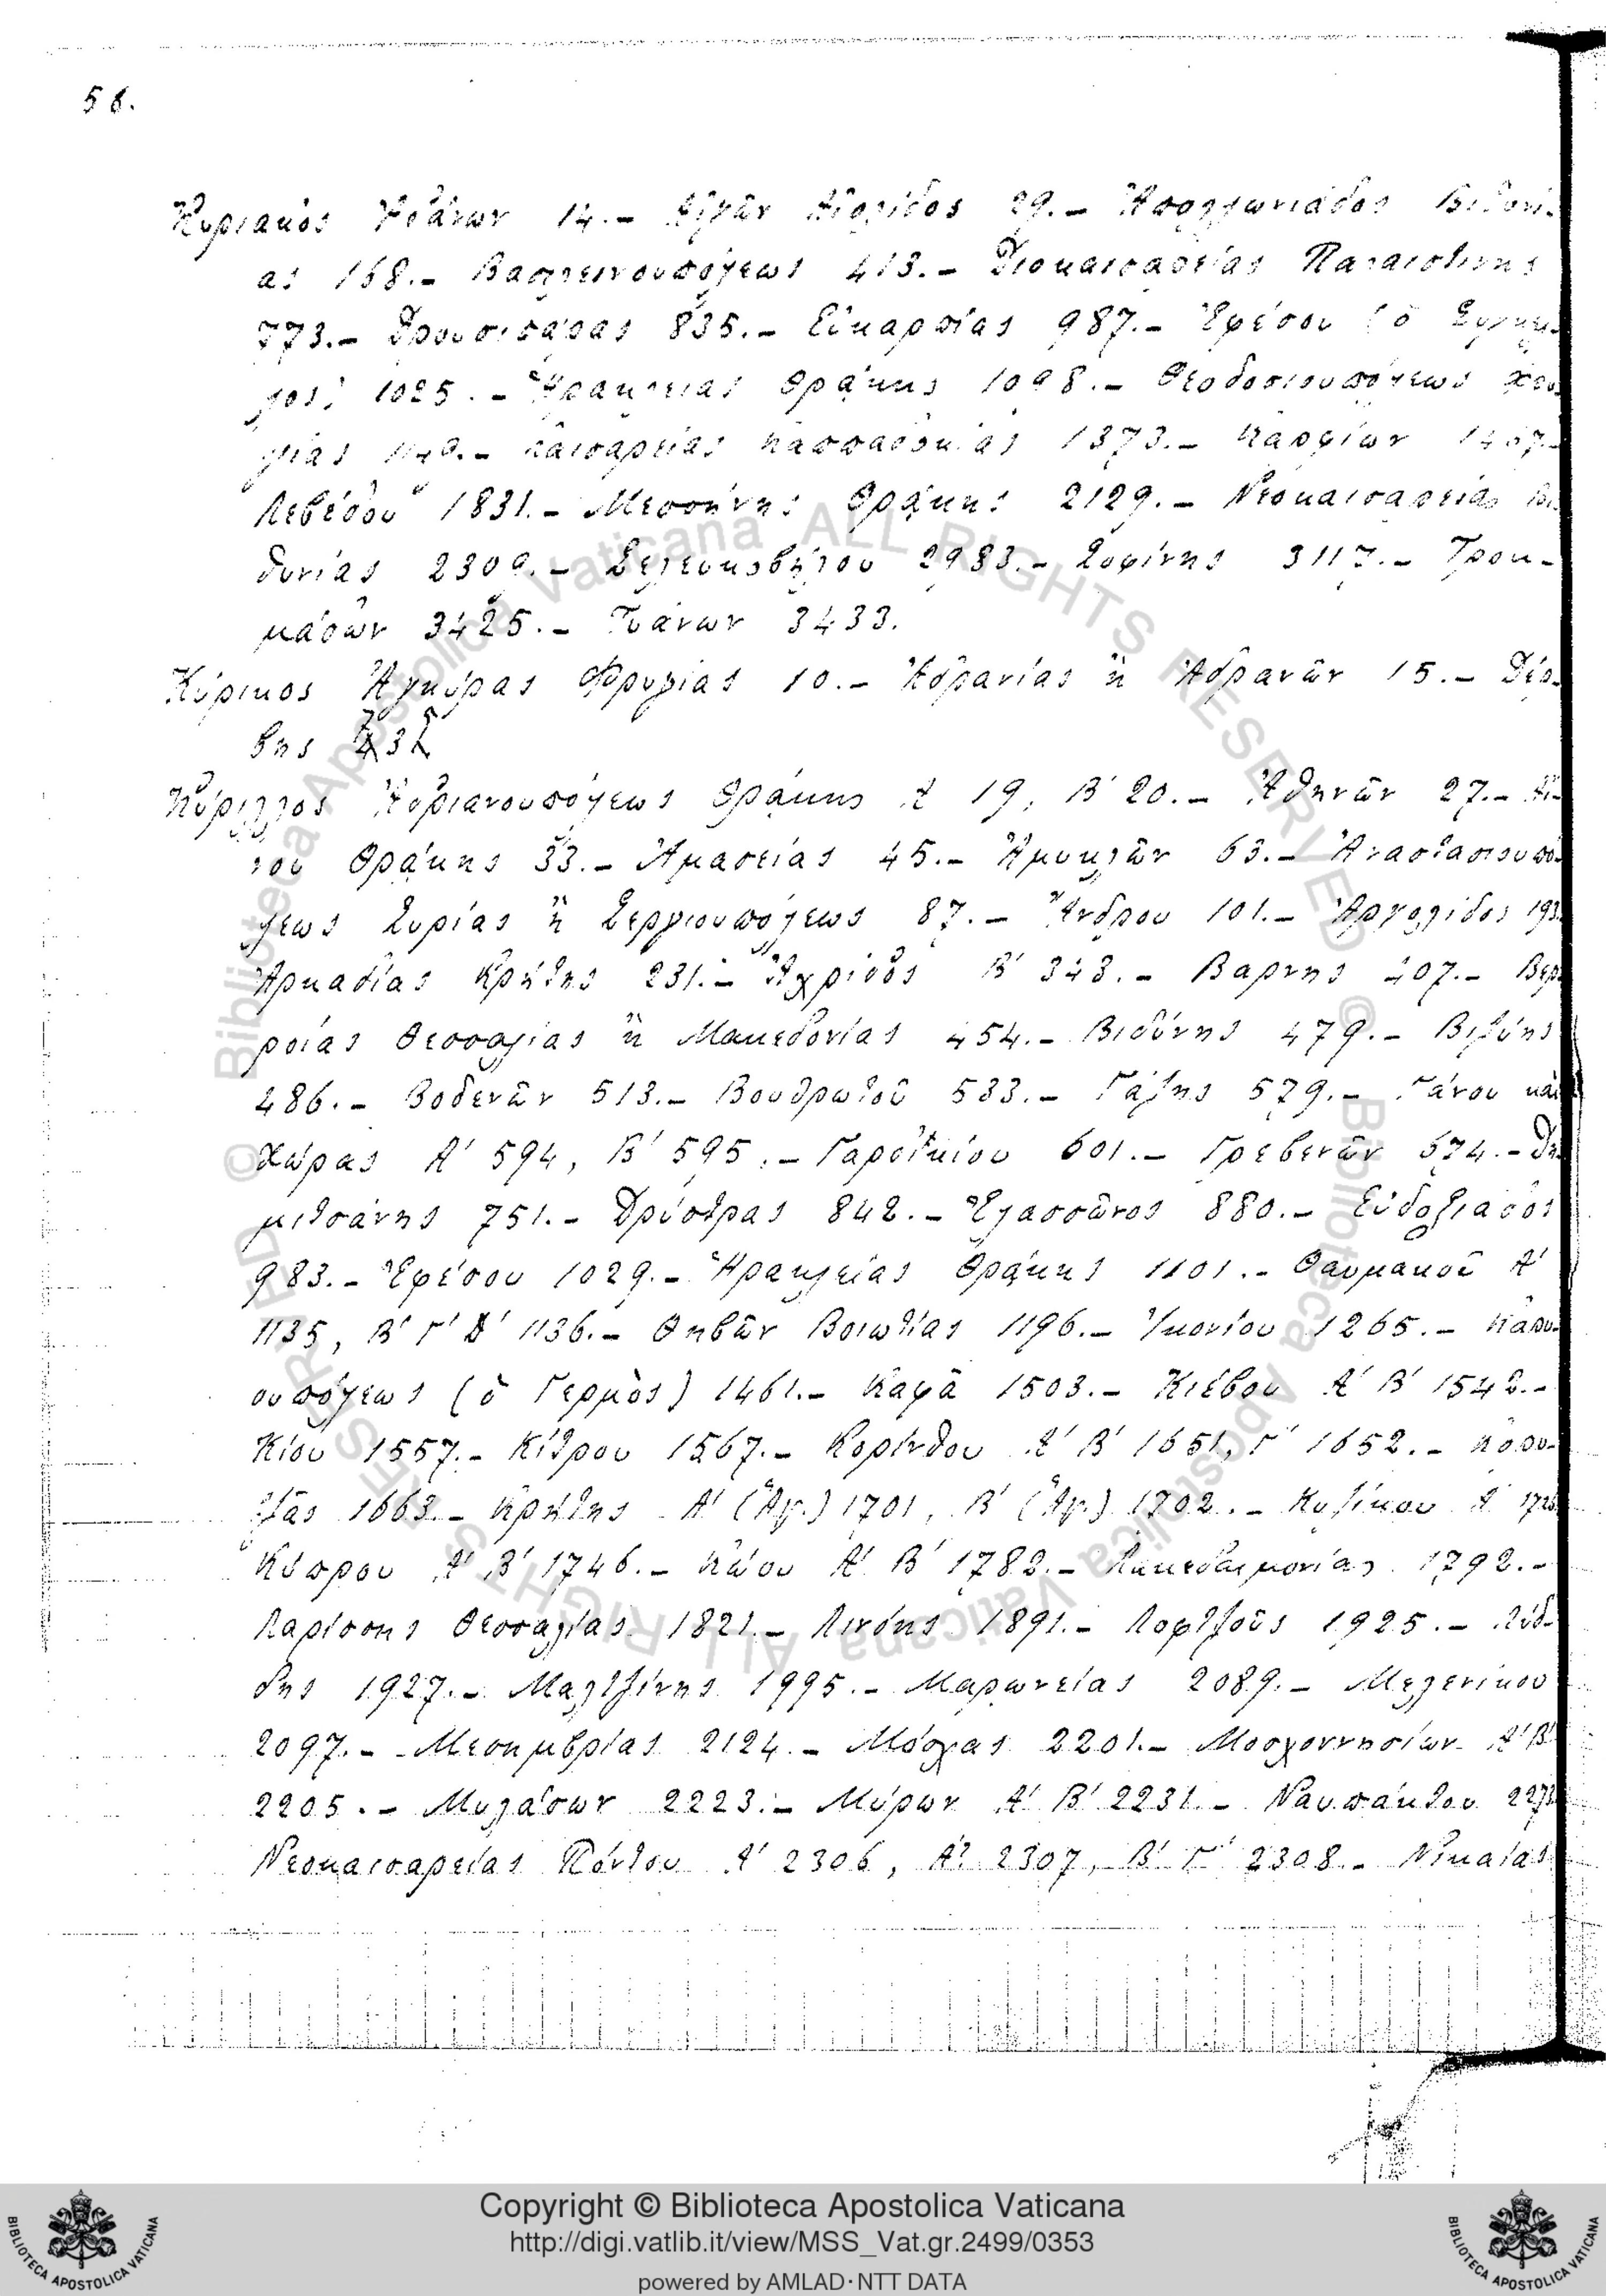 56.
Κυριακὸς Ἀδάνων 14.- Αἰγῶν Αἰολίδος 29.- Ἀπολλωνιάδος Βιθυνί-
ας 168.- Βασιλεινουπόλεως 413.- Διοκαισαρείας Παλαιστίνης
773.- Δρουσιπάρας 835.- Εὐκαρπίας 987.- Ἐφέσου (ὁ
1025.- Ἡρακλείας Θρᾴκης 1098.- Θεοδοσιουπόλεως
Καισαρείας Καππαδοκίας 1373.- Καρφίων
Λεβέδου 1831.- Μεσσήνης Θρᾴκης 2129.- Νεοκαισαρείας Βι-
θυνίας 2309.- Σελευκοβήλου 2983.- Σωφίνης 3117.- Τροκ-
μάδων 3425.- Τυάνων 3433.
Κύρικος Ἀγκύρας Φρυγίας 10.- Ἀδρανίας ἢ Ἀδρανῶν 15.- Δέρ-
βης
Κύριλλος Ἀδριανουπόλεως Θρᾴκης Α' 19, Β' 20.- Ἀθηνῶν 27.- Αἴ-
νου Θρᾴκης 33.- Ἀμασείας 45.- Ἀμυκλῶν 63.- Ἀναστασιουπό-
λεως Συρίας ἢ Σεργιουπόλεως 87.- Ἄνδρου 101.- Ἀργολίδος 193.
Ἀρκαδίας Κρήτης 231.- Ἀχρίδος Β' 343.- Βάρνης 407.- Βερ-
ροίας Θεσσαλίας ἢ Μακεδονίας 454.- Βιδύνης 479.- Βιζύης
486.- Βοδενῶν 513.- Βουθρωτοῦ 533.- Γάζης 579.- Γάνου καὶ
Χώρας Α' 594, Β' 595.- Γαρδικίου 601.- Γρεβενῶν 674.- Δη-
μιτσάνης 751.- Δρύστρας 842.- Ἐλασσῶνος 880.- Εὐδοξιάδος
983.- Ἐφέσου 1029.- Ἡρακλείας Θρᾴκης 1101.- Θαυμακοῦ Α'
1135, Β' Γ' Δ' 1136.- Θηβῶν Βοιωτίας 1196.- Ἰκονίου 1265.- Καρυ-
ουπόλεως (ὁ Γερμὸς) 1461.- Καφᾶ 1503.- Κιέβου Α' Β' 1542.-
Κίου 1557.- Κίτρου 1567.- Κορίνθου Α' Β' 1651, Γ' 1652.- Κορυ-
τζᾶς 1663.- Κρήτης Α' (Ἁγ.) 1701, Β' (Ἁγ.) 1702.- Κυζίκου Α'
Κύπρου Α' Β' 1746.- Κώου Α' Β' 1782.- Λακεδαιμονίας 1792.-
Λαρίσσης Θεσσαλίας 1821.- Λινόης 1891.- Λοφτζοῦς 1925.- Λύδ-
δης 1927.- Μαλτζίνης 1995.- Μαρωνείας 2089.- Μελενίκου
2097.- Μεσημβρίας 2124.- Μόσχας 2201.- Μοσχοννησίων Α' Β'
2205.- Μυλάσων 2223.- Μύρων Α' Β' 2231.- Ναυπάκτου
Νεοκαισαρείας Πόντου Α' 2306, Α' 2307, Β' Γ' 2308.- Νικαίας
© Biblioteca Apostolica Vaticana ALL RIGHTS RESERVED
© Biblioteca Apostolica Vaticana ALL RIGHTS RESERVED
Copyright © Biblioteca Apostolica Vaticana
http://digi.vatlib.it/view/MSS_Vat.gr.2499/0353
powered by AMLAD·NTT DATA
BIBLIOTECA APOSTOLICA VATICANA
BIBLIOTECA APOSTOLICA VATICANA